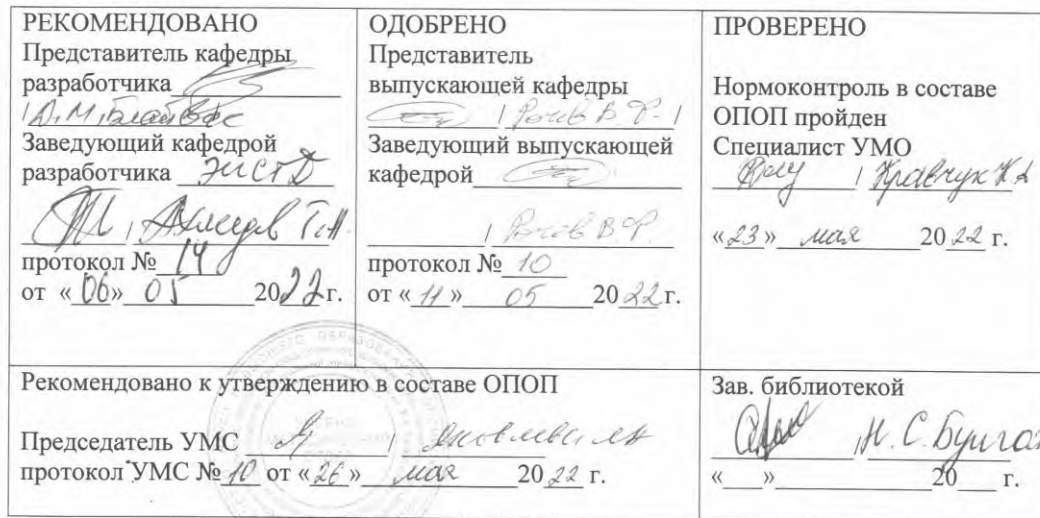 РЕКОМЕНДОВАНО
Представитель кафедры
разработчика
Заведующий кафедрой
разработчика ЭиСТД
протокол № 14
от «06» 05 2022г.
ОДОБРЕНО
Представитель
выпускающей кафедры
/ В.Ф. /
Заведующий выпускающей
кафедрой
/ В.Ф.
протокол № 10
от «11» 05 2022г.
ПРОВЕРЕНО
Нормоконтроль в составе
ОПОП пройден
Специалист УМО
/ Кравчук К.А
«23» мая 2022 г.
Рекомендовано к утверждению в составе ОПОП
Председатель УМС /
протокол УМС № 10 от «26» мая 2022 г.
Зав. библиотекой
/Н.С.
« » 20 г.